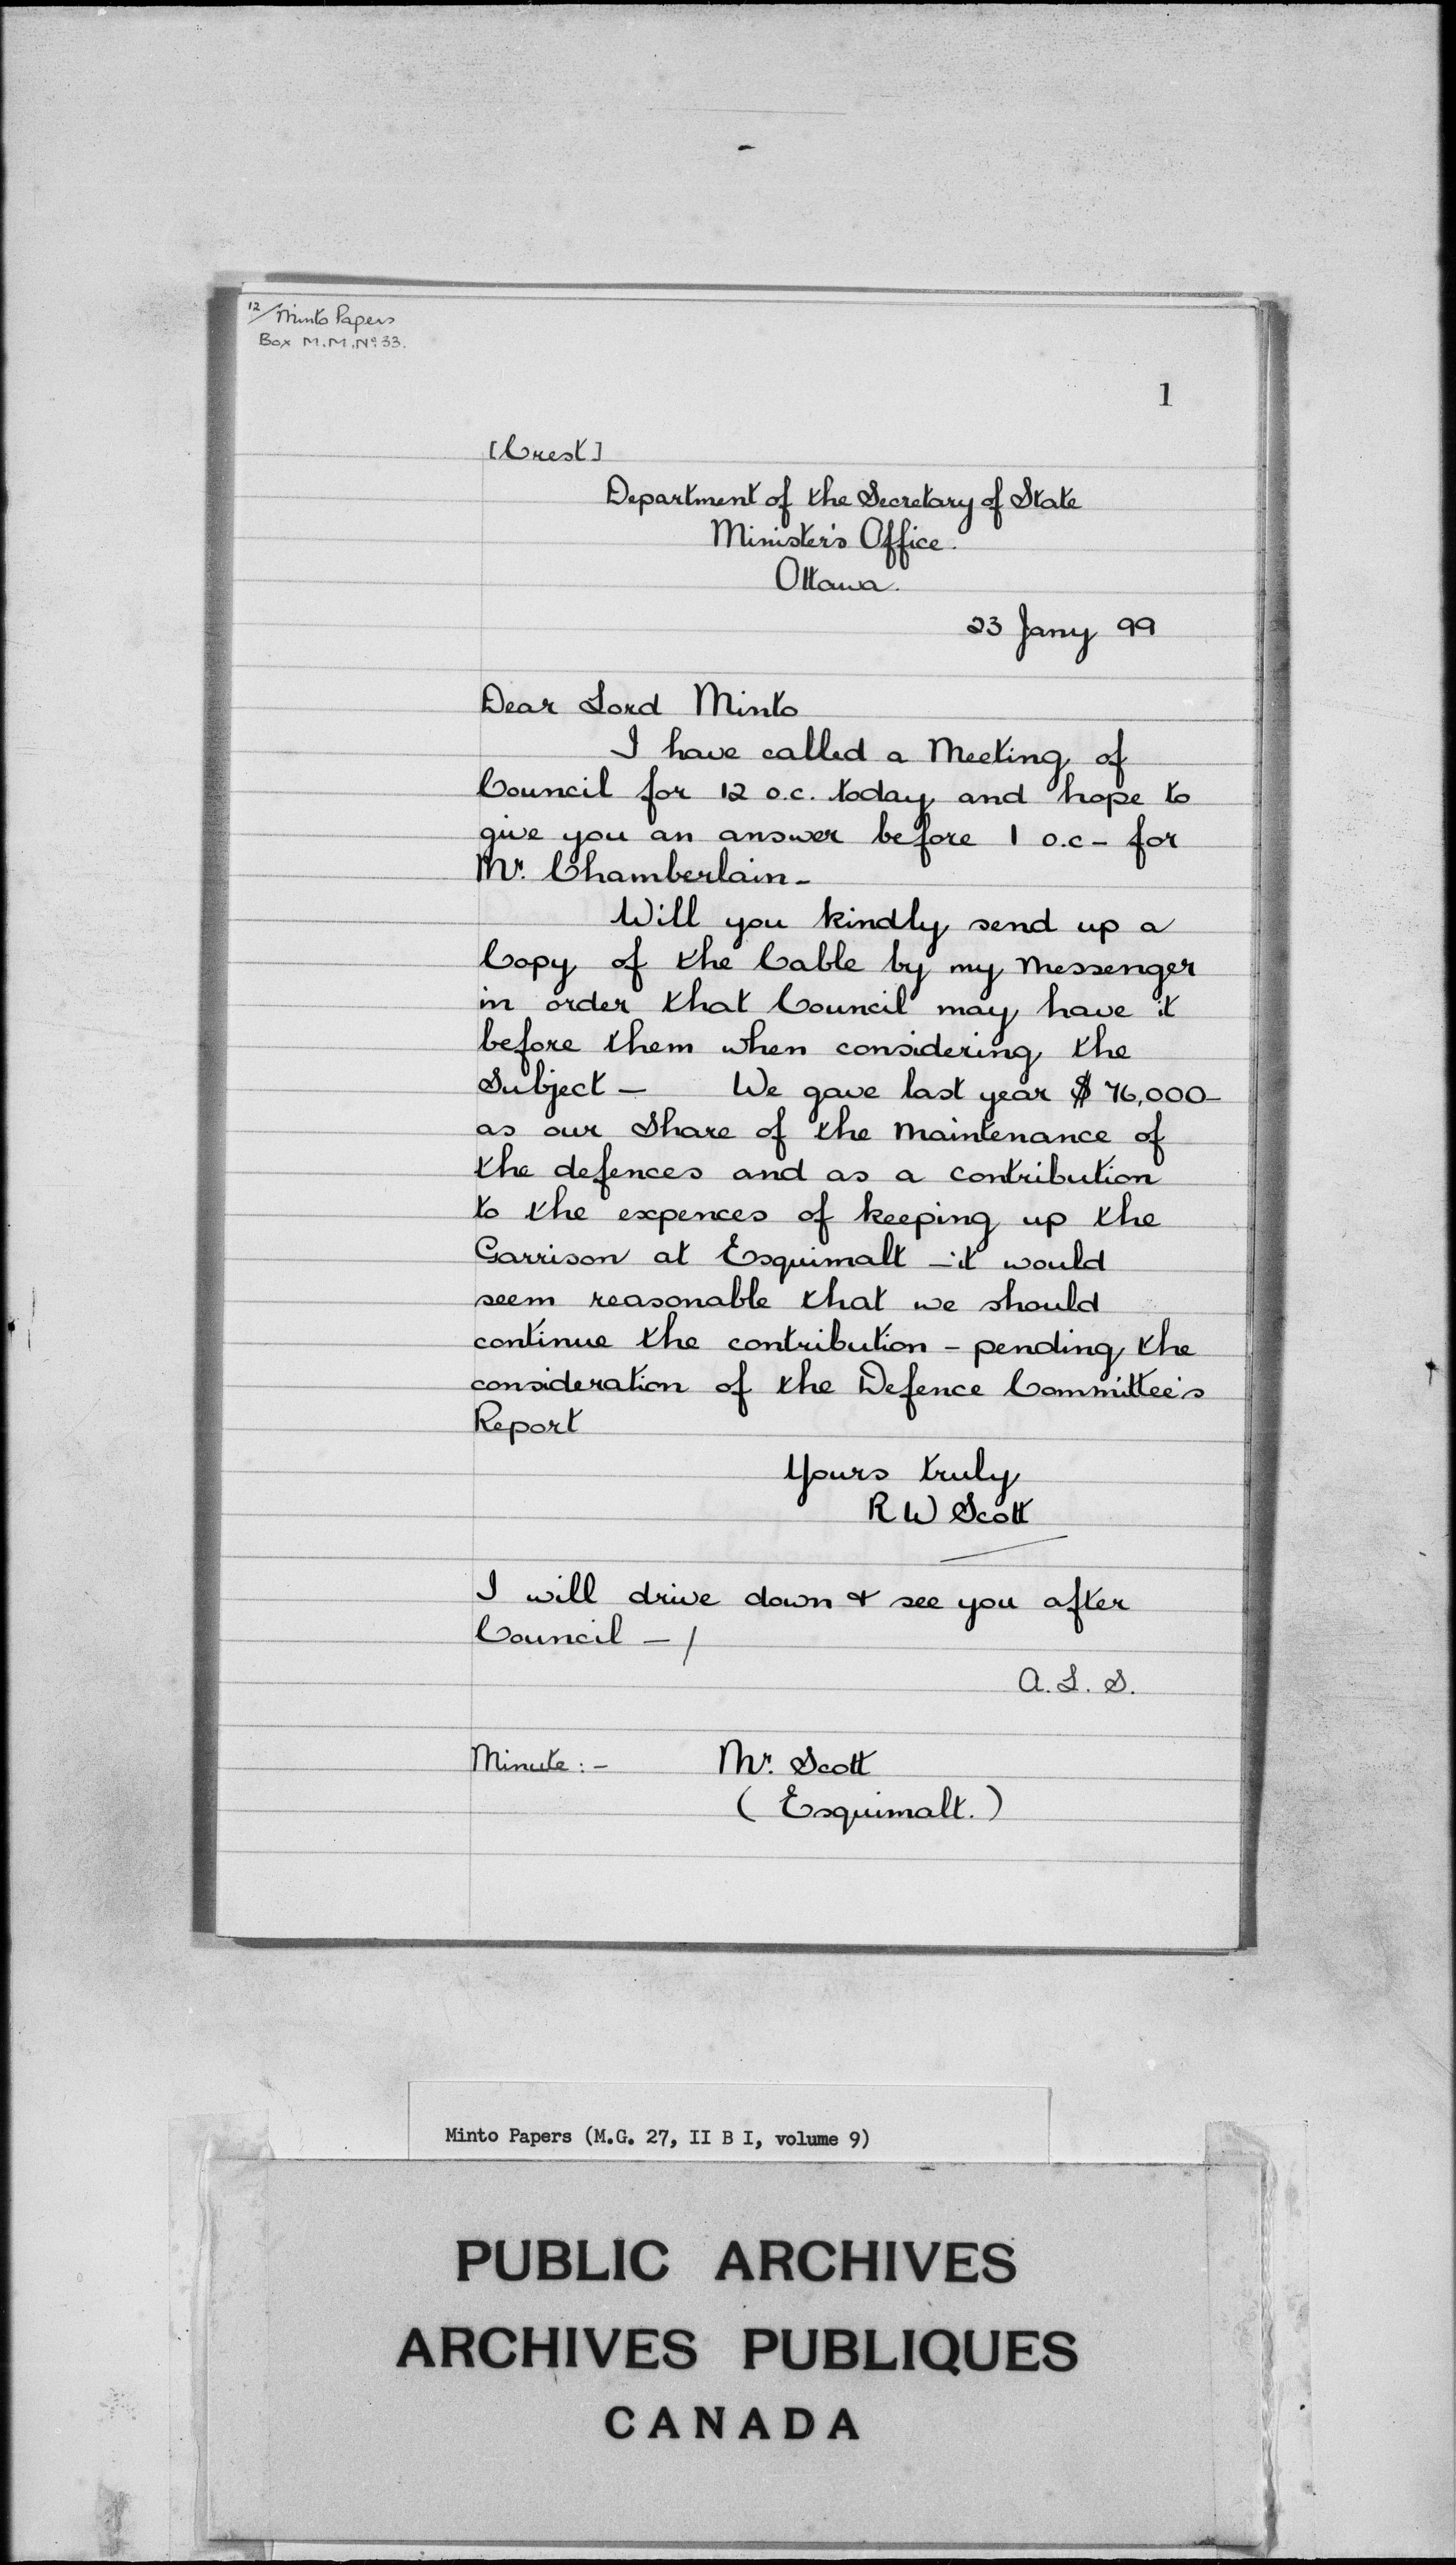 12/Minto Papers
Box M.M.Nº.33.
1
[Crest]
Department of the Secretary of State
Minister's Office.
Ottawa.
23 Jany 99
Dear Lord Minto
I have called a Meeting of
Council for 12 o.c. today and hope to
give you an answer before 1 o.c - for
Mr. Chamberlain -
Will you kindly send up a
Copy of the Cable by my messenger
in order that Council may have it
before them when considering the
Subject - We gave last year $ 76,000 -
as our Share of the maintenance of
the defences and as a contribution
to the expences of keeping up the
Garrison at Esquimalt - it would
seem reasonable that we should
continue the contribution - pending the
consideration of the Defence Committee's
Report
Yours truly
R W Scott
I will drive down & see you after
Council - /
A. L. S.
Minute : - Mr. Scott
( Esquimalt. )
Minto Papers (M.G. 27, II B I, volume 9)
PUBLIC ARCHIVES
ARCHIVES PUBLIQUES
CANADA